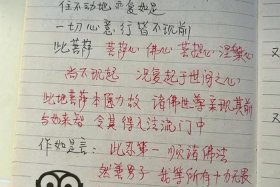 住不动地亦复如是
一切心意行皆不现前
此菩萨 菩萨心 佛心 菩提心 涅槃心
尚不现起 况复起于世间之心
此地菩萨本愿力故 诸佛世尊亲现其前
与如来智 令其得入法流门中
作如是言: 此忍第一 顺诸佛法
然善男子 我等所有十力无畏